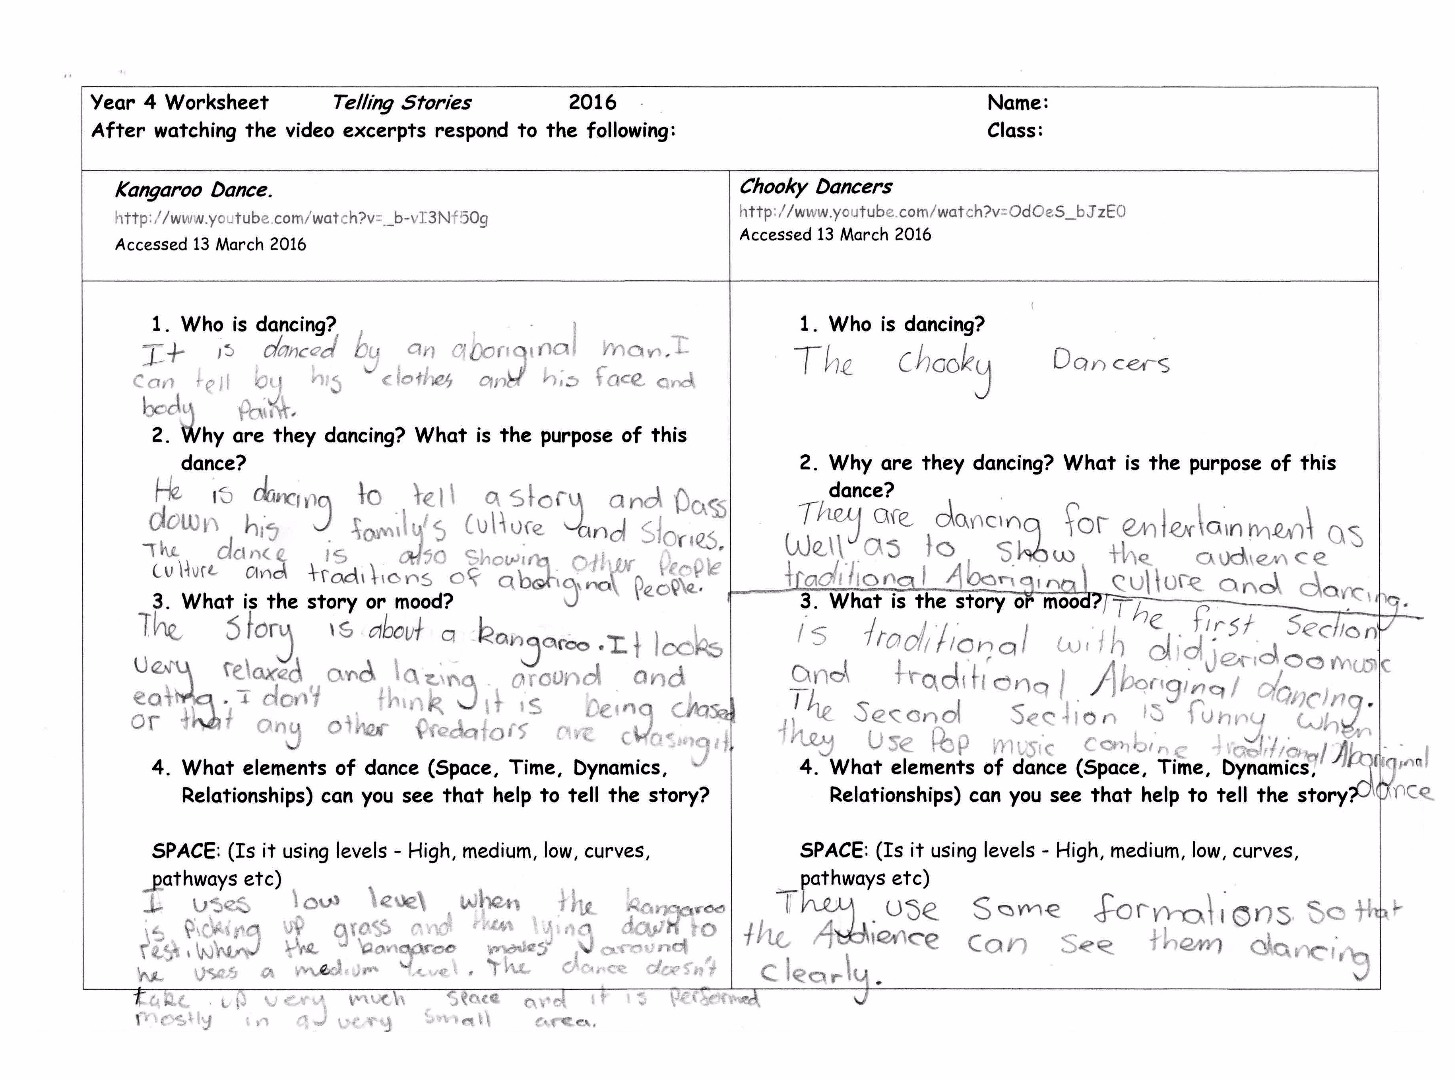 Year 4 Worksheet Telling Stories 2016 Name:
After watching the video excerpts respond to the following: Class:
Kangaroo Dance.
http://www.youtube.com/watch?v=_b-vI3Nf50g
Accessed 13 March 2016
1. Who is dancing?
It is danced by an aboriginal man. I
can tell by his clothes and his face and
body Paint.
2. Why are they dancing? What is the purpose of this
dance?
He is dancing to tell a story and Pass
down his family's culture and Stories.
The dance is also showing other People
culture and traditions of aboriginal People.
3. What is the story or mood?
The Story is about a kangaroo. It looks
very relaxed and lazing around and
eating. I don't think it is being chased
or that any other Predators are chasing it
4. What elements of dance (Space, Time, Dynamics,
Relationships) can you see that help to tell the story?
SPACE: (Is it using levels - High, medium, low, curves,
pathways etc)
I uses low level when the kangaroo
is Picking up grass and then lying down to
rest. When the kangaroo moves around
he uses a medium level. The dance doesn't
take up very much space and it is Performed
mostly in a very small area.
Chooky Dancers
http://www.youtube.com/watch?v=OdOeS_bJzE0
Accessed 13 March 2016
1. Who is dancing?
The Chooky Dancers
2. Why are they dancing? What is the purpose of this
dance?
They are dancing for entertainment as
Well as to show the audience
traditional Aboriginal culture and dancing.
3. What is the story or mood? The first Section
is traditional with didjeridoo music
and traditional Aboriginal dancing.
The Second Section is funny when
they use Pop music combine traditional Aboriginal
dance
4. What elements of dance (Space, Time, Dynamics,
Relationships) can you see that help to tell the story?
SPACE: (Is it using levels - High, medium, low, curves,
pathways etc)
They use some formations so that
the Audience can see them dancing
clearly.